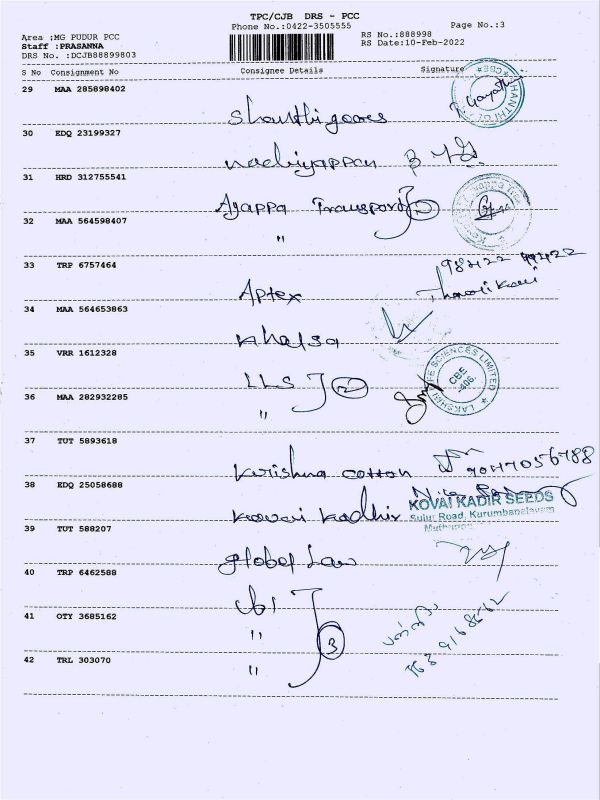 TPC/CJB DRS - PCC
Phone No.:0422-3505555
Page No.:3
Area :MG PUDUR PCC
RS No.:888998
Staff :PRASANNA
RS Date:10-Feb-2022
DRS No. :DCJB88899803
S No Consignment No Consignee Details Signature
29 MAA 285898402
Shanthi gears
30 EDQ 23199327
Nachiyappan
31 HRD 312755541
Ayappa Transport 2
32 MAA 564598407
"
33 TRP 6757464
Aptex
34 MAA 564653863
Khalsa
35 VRR 1612328
LLS 2
LIFE SCIENCES LIMITED
CBE
-406.
LAKSHMI
36 MAA 282932285
"
37 TUT 5893618
Krishna cotton
38 EDQ 25058688
Kovai Kadhir
KOVAI KADIR SEEDS
Sulur Road, Kurumbapalayam
39 TUT 588207
global Law
40 TRP 6462588
41 OTY 3685162
"
3
42 TRL 303070
"